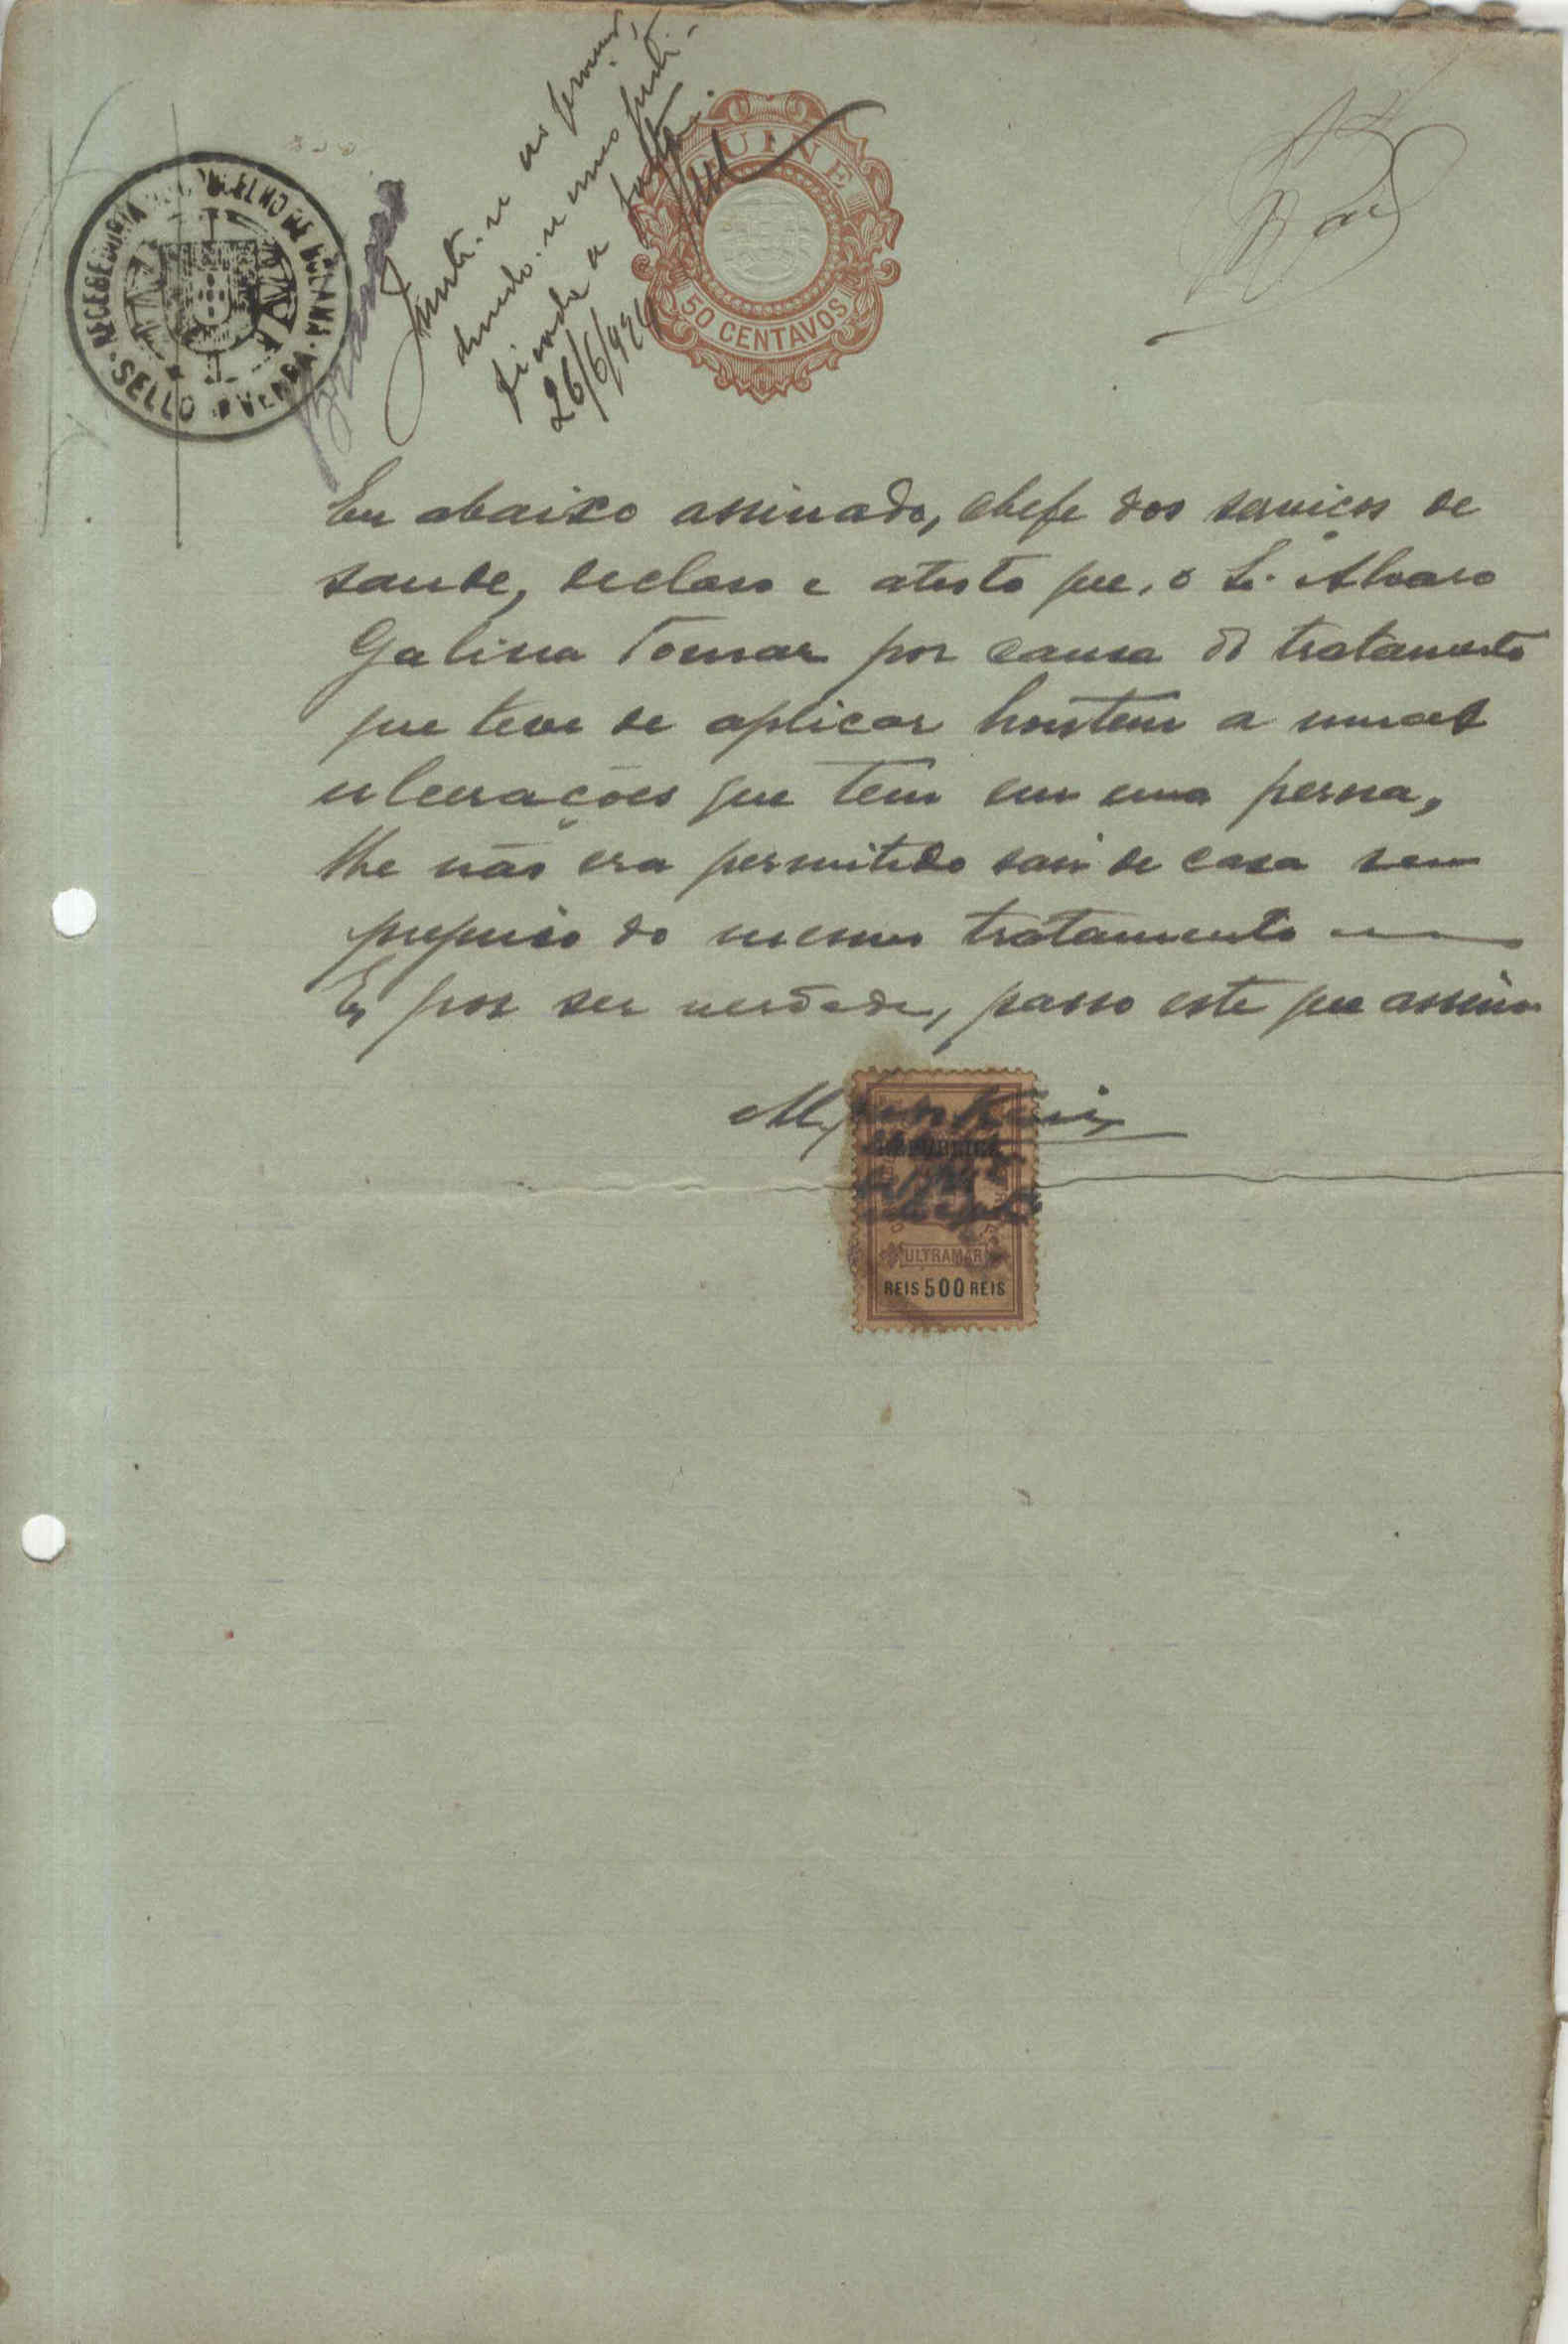 RECEBEDORIA DO CONCELHO DE BOLAMA
SELLO DE VERBA
Junte-se ao processo,
dando-se como justi-
ficada a falta.
26/6/924
GUINÉ
50 CENTAVOS
Eu abaixo assinado, chefe dos serviços de
saude, declaro e atesto que, o Sr. Alvaro
Galina Tomar por causa do tratamento
que teve de aplicar hontem a umas
ulcerações que tem em uma perna,
lhe não era permitido sair de casa sem
prejuiso do mesmo tratamento
E, por ser verdade, passo este que assino
ULTRAMAR
REIS 500 REIS